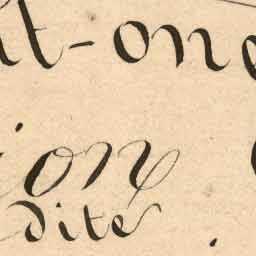 it-one
ion
dite